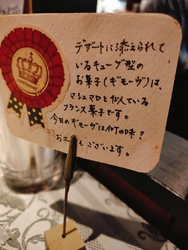 デザートに添えられて
いるキューブ型の
お菓子(ギモーヴ)は、
マシュマロと似ている
フランス菓子です。
今日のギモーヴは何の味?
お土産もございます。